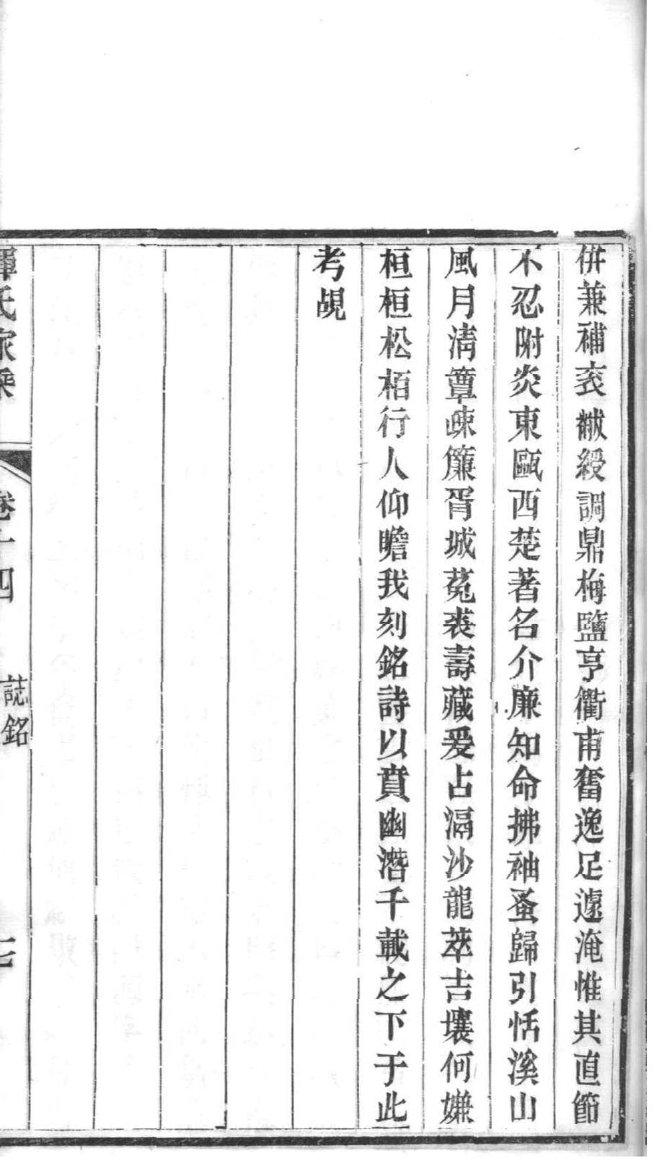 併兼補衮黻綬調鼎梅鹽亨衢甫奮逸足遽淹惟其直節
不忍附炎東甌西楚著名介廉知命拂袖蚤歸引恬溪山
風月清簟疎簾胥城菟裘壽藏爰占涺沙龍萃吉壤何嫌
桓桓松栢行人仰瞻我刻銘詩以賁幽潛千載之下于此
考覘
氏家乘
卷十四
誌銘